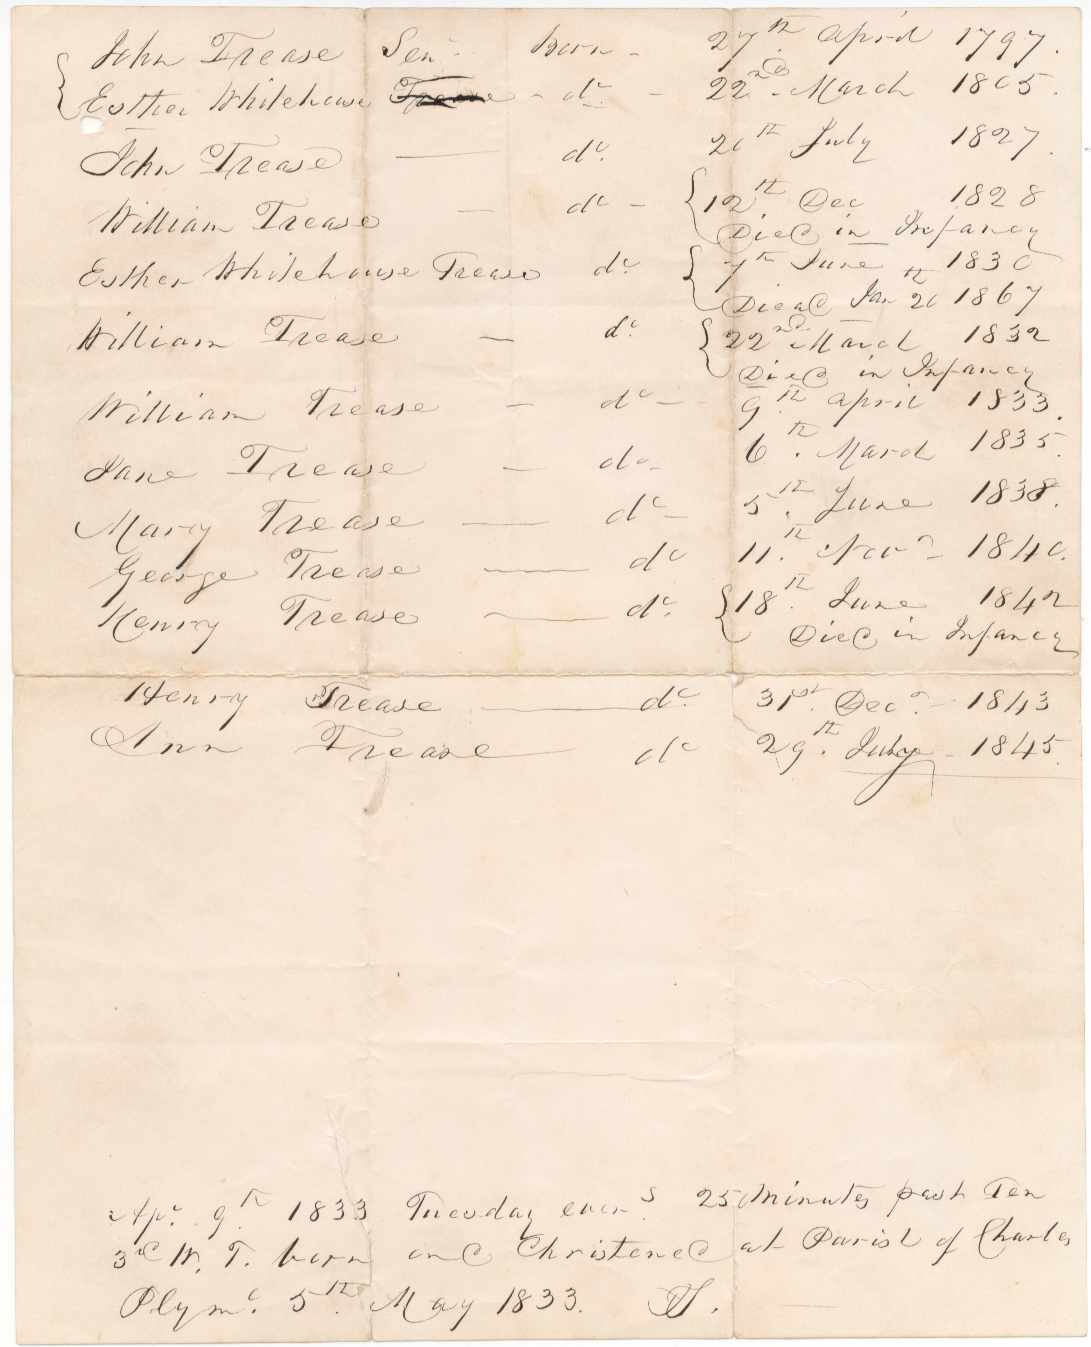 John Trease Senr born - 27th April 1797.
Esther Whitehouse Trease - do - 22nd March 1805.
John Trease — do. 20th July 1827.
William Trease — do - 12th Dec 1828
Died in Infancy
Esther Whitehouse Trease do 7th June 1830
Died Jan 20th 1867
William Trease — do. 22nd March 1832
Died in Infancy
William Trease - do - 9th April 1833.
Jane Trease — do - 6th. March 1835.
Mary Trease — do - 5th. June 1838.
George Trease — do 11th. Novr - 1840.
Henry Trease — do. 18th. June 1842
Died in Infancy
Henry Trease — do. 31st. Decr. - 1843
Ann Trease — do 29th. July - 1845.
Apr. 9th 1833 Tuesday eveng. 25 Minutes past Ten
3rd W. T. born and Christened at Parish of Charles
Plymo. 5th. May 1833.